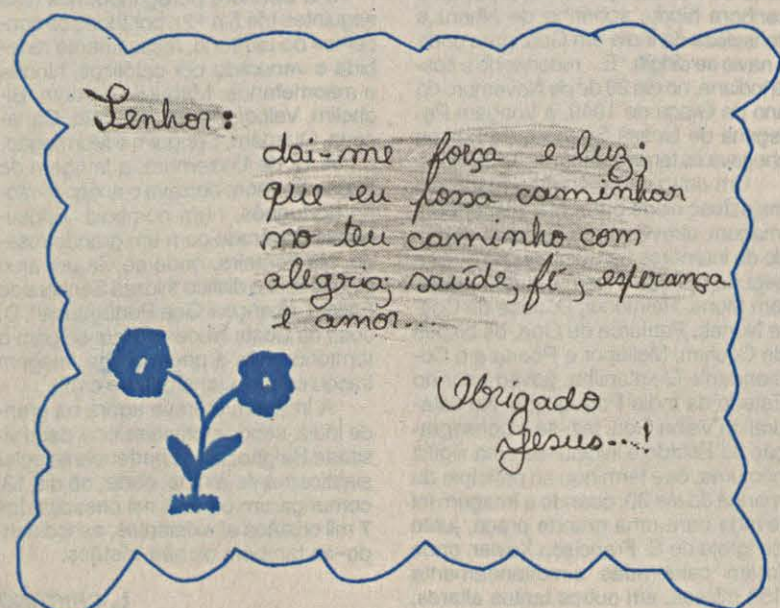 Senhor:
dai-me força e luz;
que eu possa caminhar
no teu caminho com
alegria, saúde, fé, esperança
e amor...
Obrigado
Jesus...!